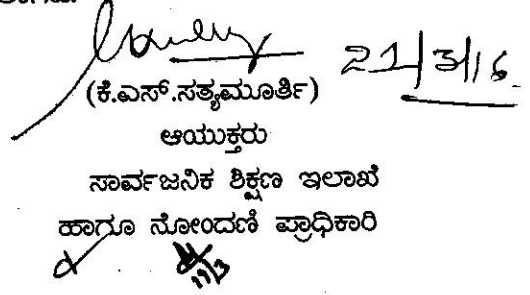 21/3/16
(ಕೆ.ಎಸ್.ಸತ್ಯಮೂರ್ತಿ)
ಆಯುಕ್ತರು
ಸಾರ್ವಜನಿಕ ಶಿಕ್ಷಣ ಇಲಾಖೆ
ಹಾಗೂ ನೋಂದಣಿ ಪ್ರಾಧಿಕಾರಿ